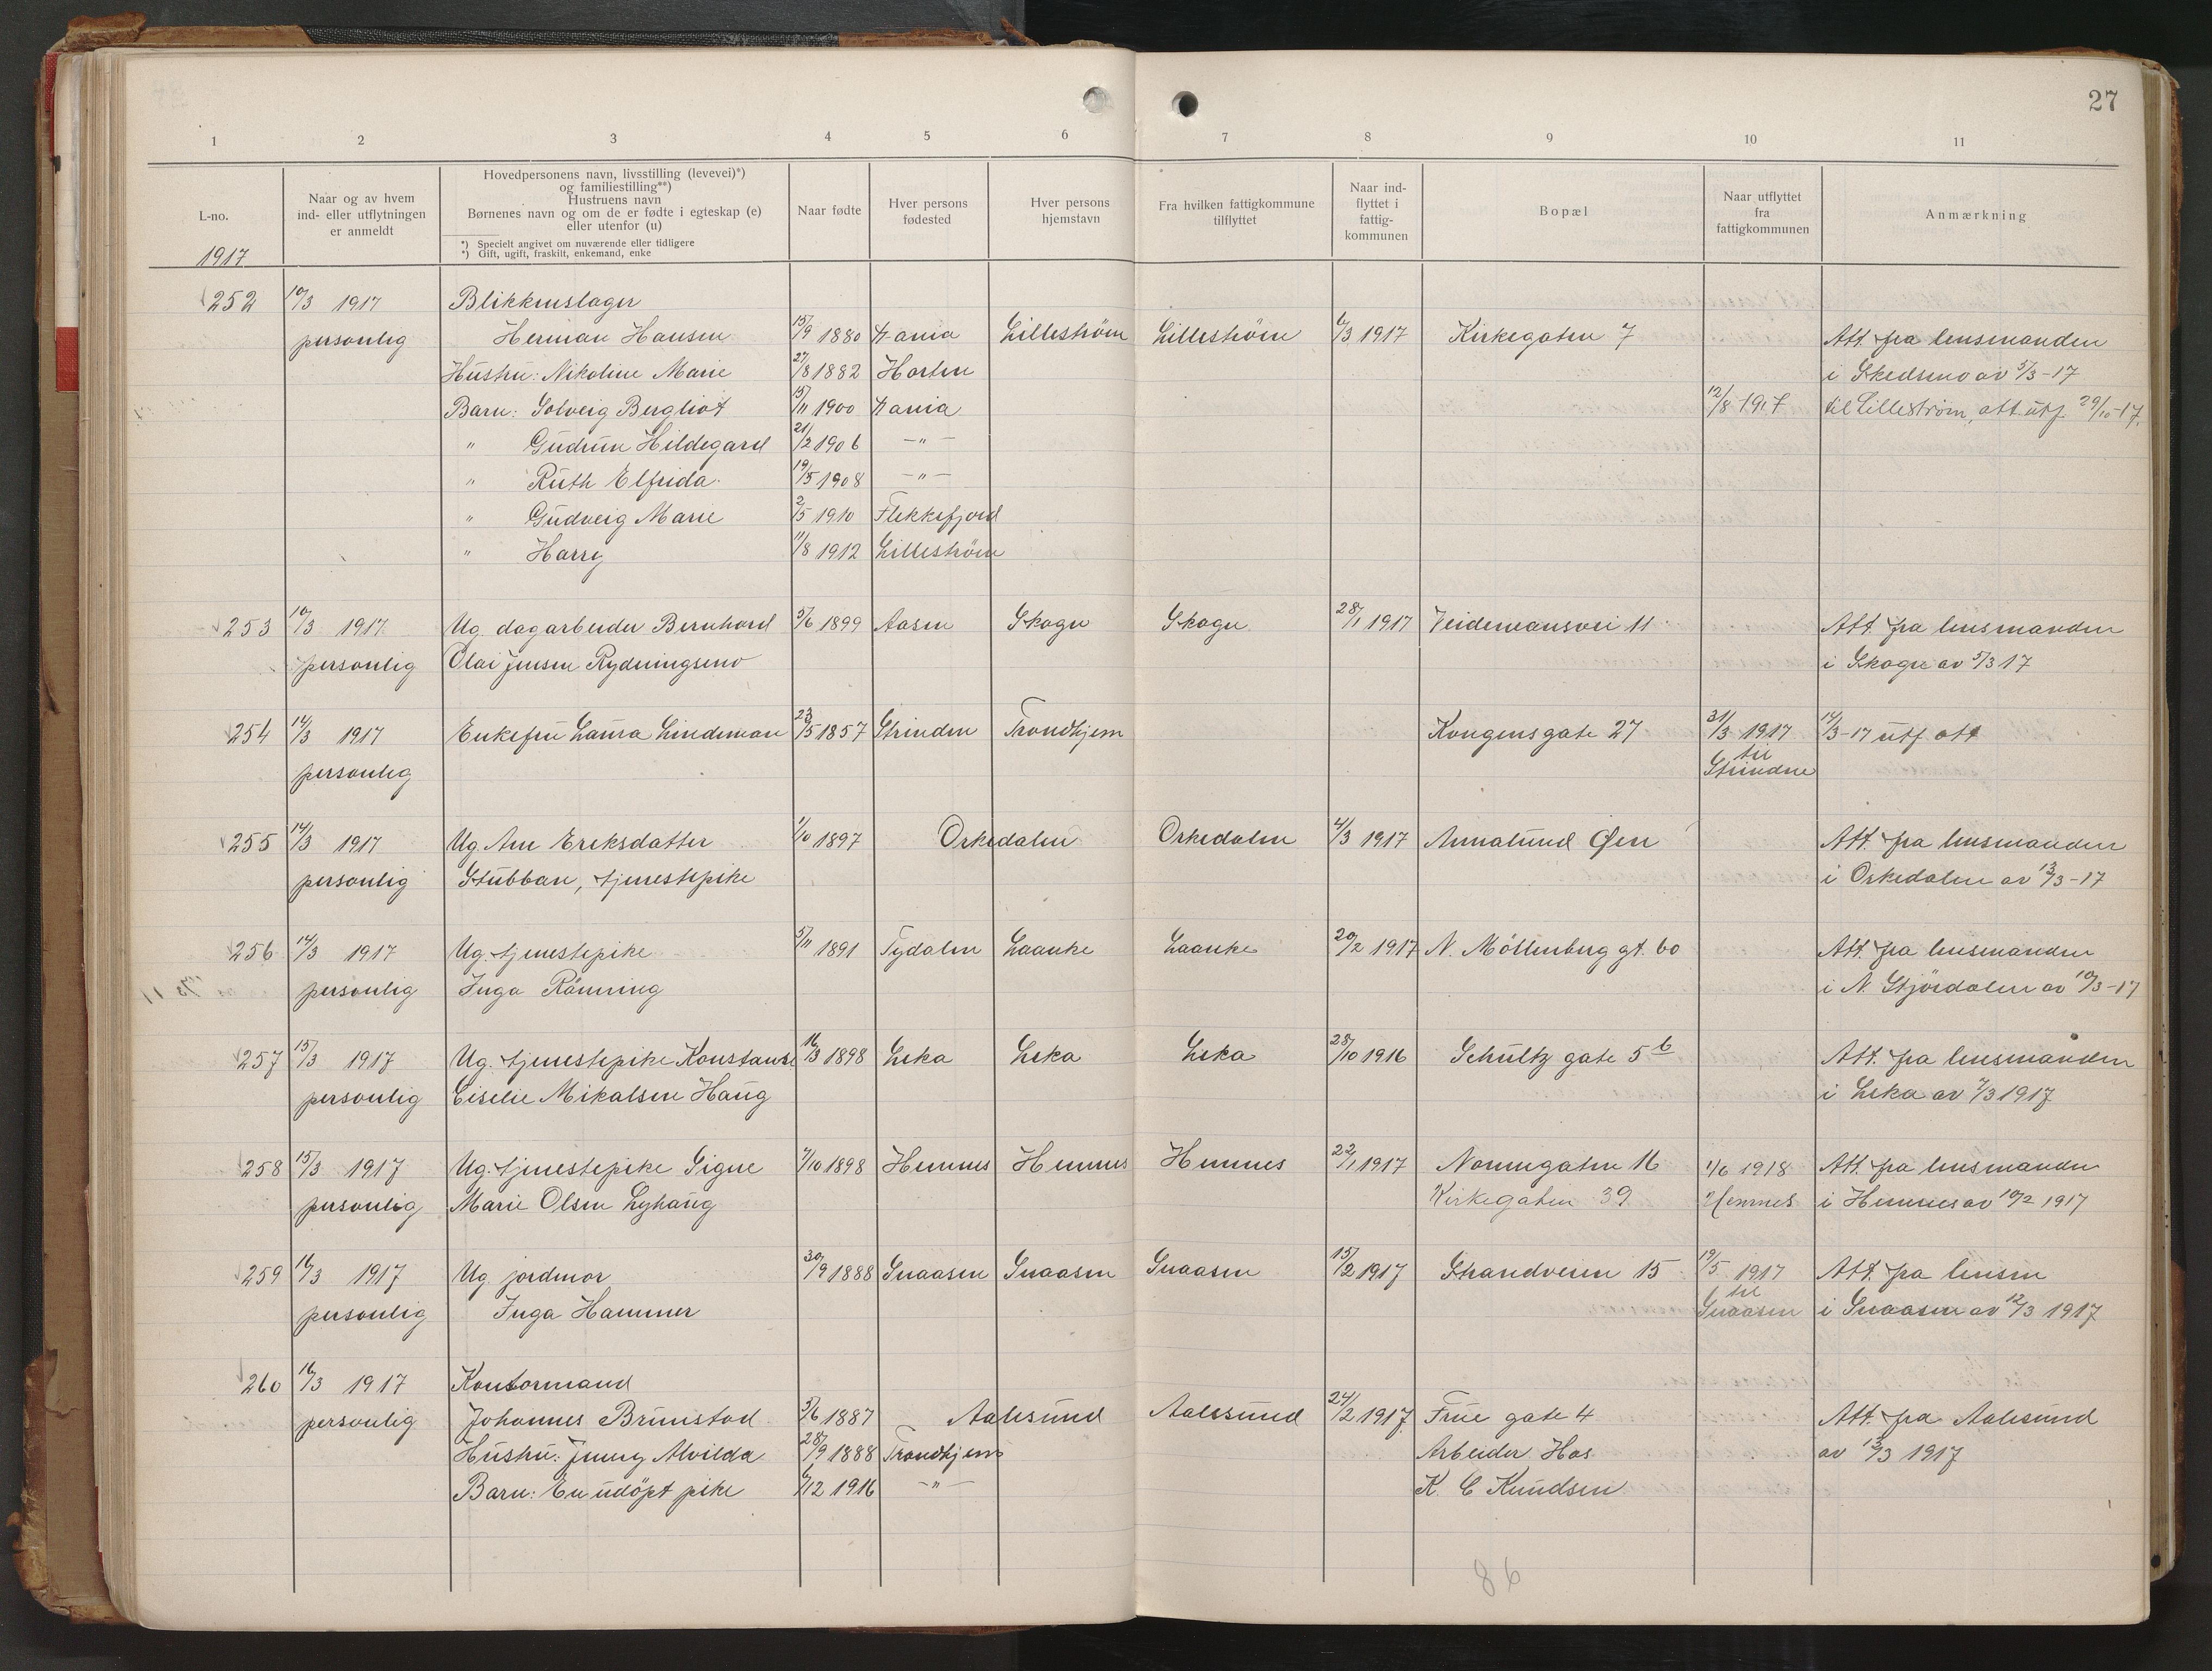 27
1 2 3 4 5 6 7 8 9 10 11
L-no.
1917
Naar og av hvem
ind- eller utflytningen
er anmeldt
Hovedpersonens navn, livsstilling (levevei)*)
og familiestilling**)
Hustruens navn
Børnenes navn og om de er fødte i egteskap (e)
eller utenfor (u)
*) Specielt angivet om nuværende eller tidligere
*) Gift, ugift, fraskilt, enkemand, enke
Naar fødte
Hver persons
fødested
Hver persons
hjemstavn
Fra hvilken fattigkommune
tilflyttet
Naar ind-
flyttet i
fattig-
kommunen
Bopæl
Naar utflyttet
fra
fattigkommunen
Anmærkning
252 10/3 1917 Blikkenslager
personlig Herman Hansen 15/9 1880 Kania Lilleström Lilleström 6/3 1917 Kirkegaten 7 Att. fra lensmanden
Hustru: Nikoline Marie 27/8 1882 Horten i Skedsmo av 5/3-17
Barn: Solveig Bergliot 15/11 1900 Kania 12/8 1917 til Lilleström, att. utf. 29/10-17.
" Gudrun Hildegard 21/2 1906 -"-
" Ruth Elfrida 19/5 1908 -"-
" Gudveig Marie 2/5 1910 Flekkefjord
" Harry 11/8 1912 Lilleström
253 10/3 1917 Ug. dagarbeider Bernhard 5/6 1899 Aasen Skogn Skogn 28/1 1917 Veidemansvei 11 Att. fra lensmanden
personlig Olai Jensen Rydningsmo i Skogn av 5/3 17
254 14/3 1917 Enkefru Laura Lindeman 23/5 1857 Strinden Trondhjem Kongensgate 27 31/3 1917 14/3-17 utf. att
personlig til
Strinden
255 14/3 1917 Ug. Ane Eriksdatter 1/10 1897 Orkedalen Orkedalen 4/3 1917 Annalund Øen Att. fra lensmanden
personlig Stubban, tjenestepike i Orkedalen av 13/3-17
256 14/3 1917 Ug. tjenestepike 5/11 1891 Tydalen Laanke Laanke 20/2 1917 N. Möllenberg gt. 60 Att. fra lensmanden
personlig Inga Rönning i N. Stjördalen av 10/3-17
257 15/3 1917 Ug. tjenestepike Konstanse 16/3 1898 Leka Leka Leka 28/10 1916 Schultz gate 5 b Att. fra lensmanden
personlig Eiselie Mikalsen Haug i Leka av 7/3 1917
258 15/3 1917 Ug. tjenestepike Signe 7/10 1898 Hemnes Hemnes Hemnes 22/1 1917 Nonnegaten 16 1/6 1918 Att. fra lensmanden
personlig Marie Olsen Lyhaug Kirkegaten 39 Hemnes i Hemnes av 10/2 1917
259 16/3 1917 Ug. jordmor 30/9 1888 Snaasen Snaasen Snaasen 15/2 1917 Strandveien 15 19/5 1917 Att. fra lensm
personlig Inga Hammer til
Snaasen i Snaasen av 12/3 1917
260 16/3 1917 Kontormand
personlig Johannes Brunstad 3/6 1887 Aalesund Aalesund 24/2 1917 Frue gate 4 Att. fra Aalesund
Hustru: Jenny Alvilda 28/9 1888 Trondhjem Arbeider Hos av 13/3 1917
Barn: En udöpt pike 6/12 1916 -"- K. C Knudsen
86